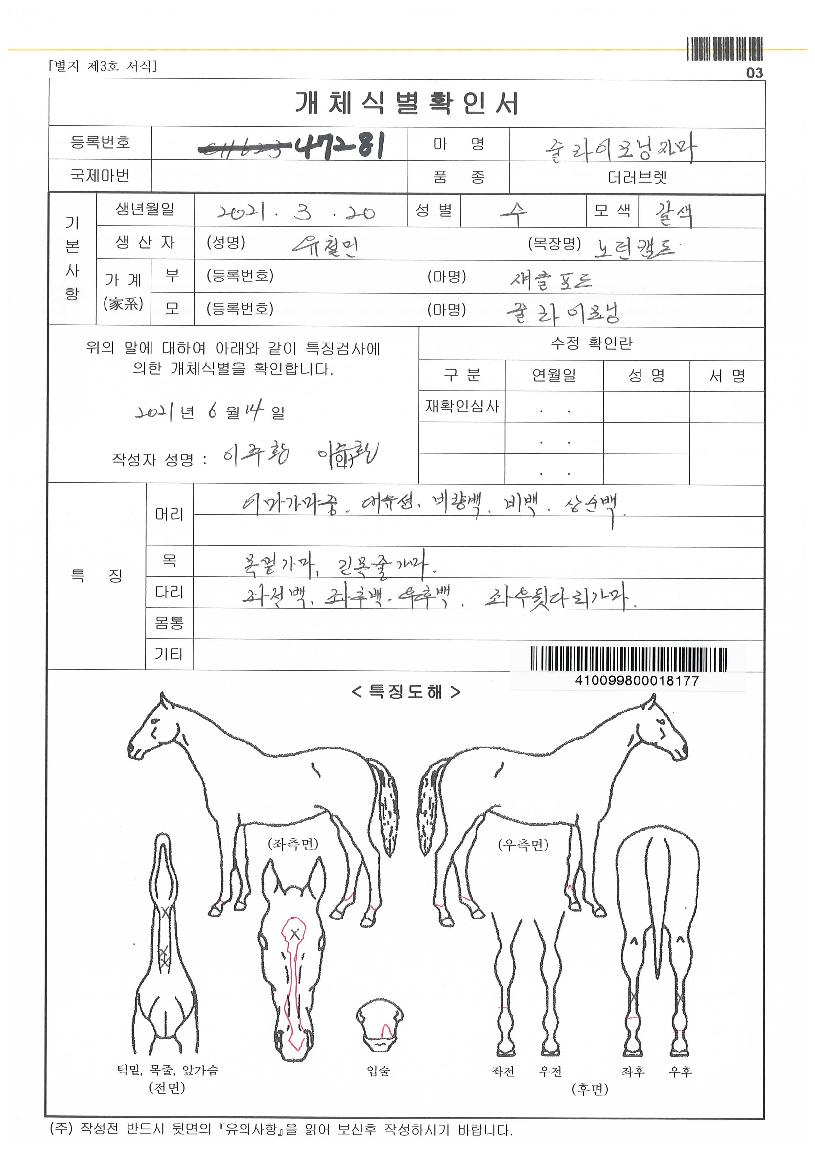 [별지 제3호 서식]
03
개체식별확인서
등록번호 47281 마 명 줄라이모닝자마
국제마번 품 종 더러브렛
기본사항
생년월일 2021 . 3 . 20 성 별 수 모 색 갈색
생 산 자 (성명) (목장명)
가 계 (家系) 부 (등록번호) (마명) 섀클포드
모 (등록번호) (마명) 줄라이모닝
위의 말에 대하여 아래와 같이 특징검사에
의한 개체식별을 확인합니다.
2021년 6월 14일
작성자 성명 :
수정 확인란
구 분 연월일 성 명 서 명
재확인심사 . .
. .
. .
특 징
머리 이마가마중. 비량백. 비백. 상순백.
목 목밑가마, 긴목줄가마.
다리 좌전백, 좌후백. 우후백. 좌우뒷다리가마.
몸통
기타
410099800018177
< 특징도해 >
(좌측면) (우측면)
턱밑, 목줄, 앞가슴
(전면)
입술
좌전 우전 좌후 우후
(후면)
(주) 작성전 반드시 뒷면의 『유의사항』을 읽어 보신후 작성하시기 바랍니다.